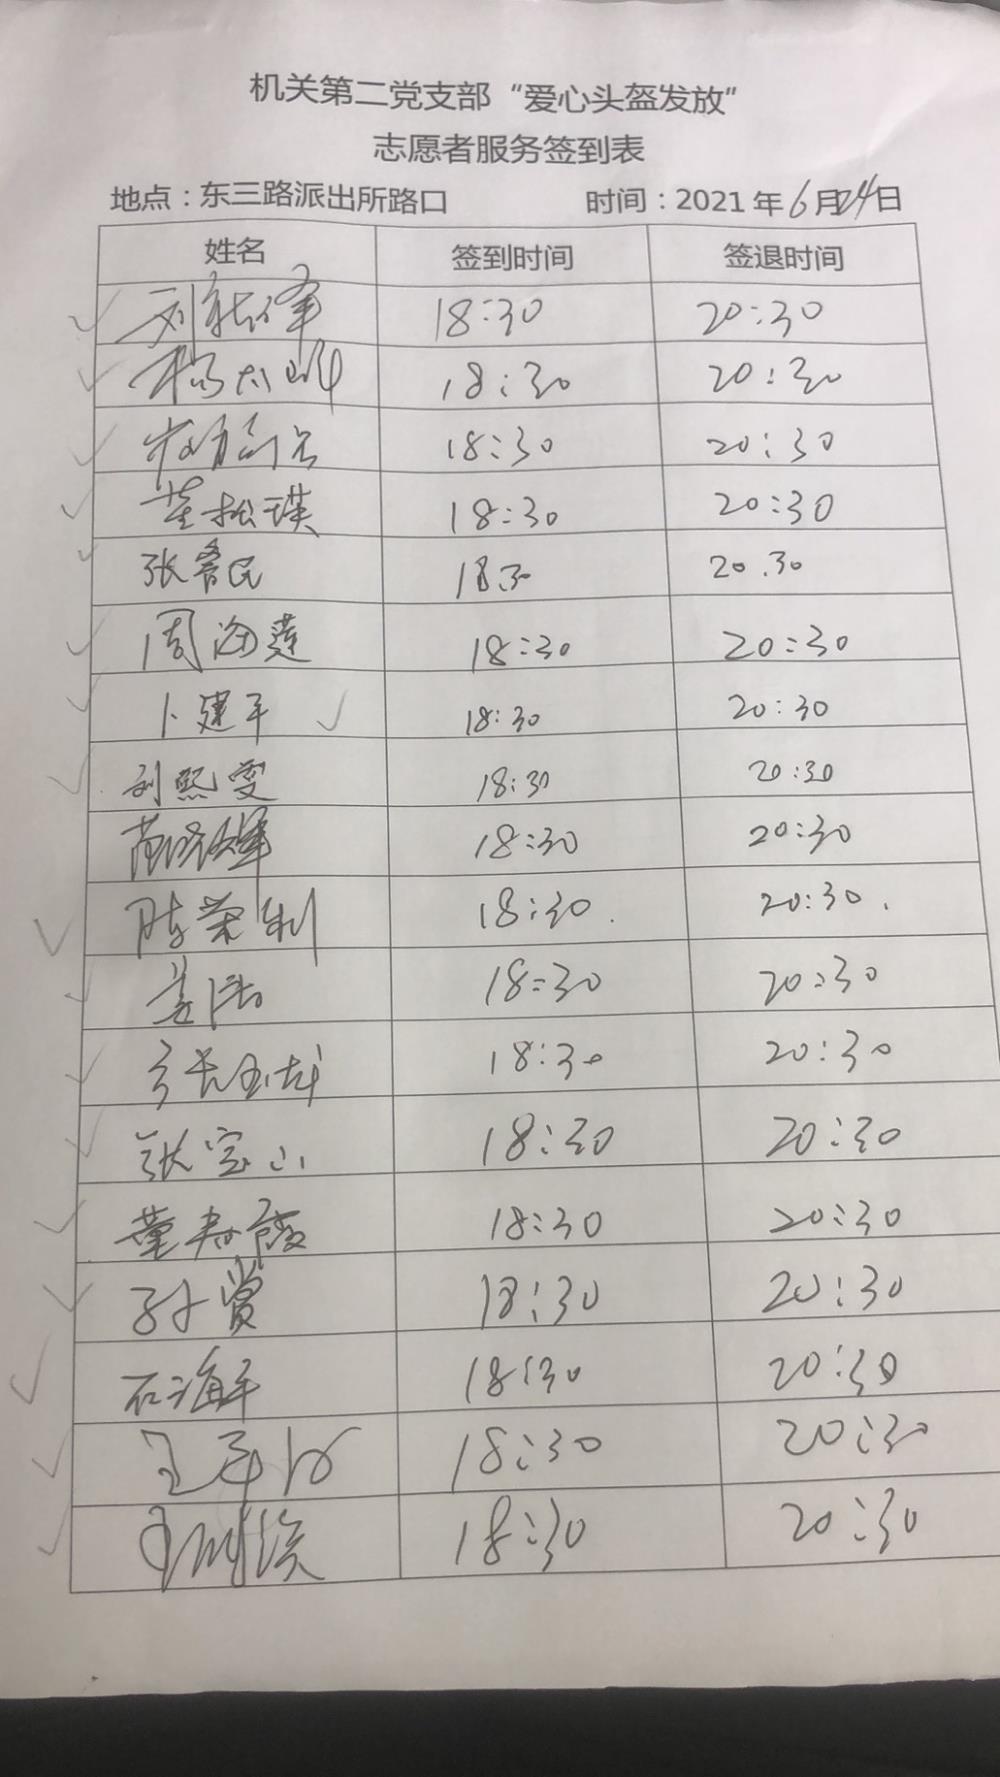 机关第二党支部“爱心头盔发放”
志愿者服务签到表
地点：东三路派出所路口 时间：2021年6月24日
姓名 签到时间 签退时间
18:30 20:30
18:30 20:30
18:30 20:30
董松瑛 18:30 20:30
张春民 18:30 20.30
周海莲 18:30 20:30
卜建平 18:30 20:30
刘熙雯 18:30 20:30
18:30 20:30
陈荣利 18:30. 20:30.
姜浩 18:30 20:30
18:30 20:30
张宝山 18:30 20:30
董春霞 18:30 20:30
孙赏 18:30 20:30
石海军 18:30 20:30
18:30 20:30
18:30 20:30